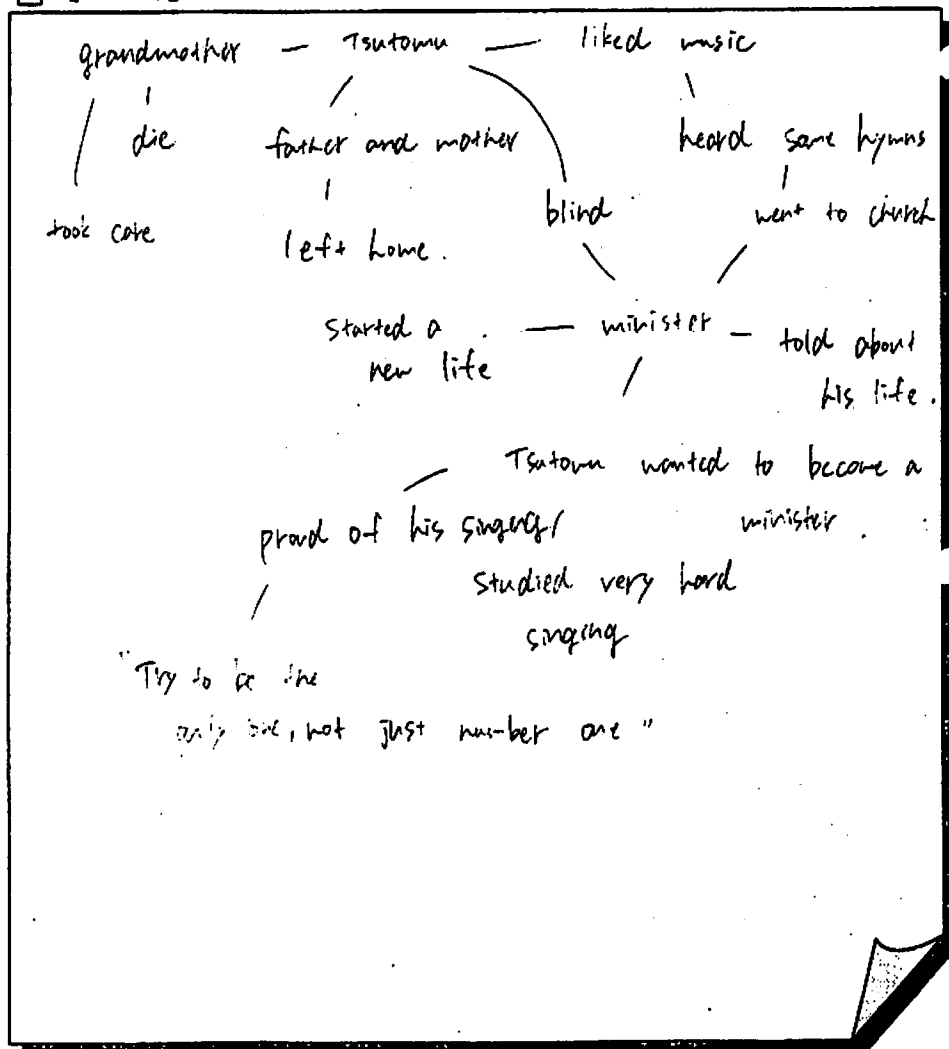 grandmother — Tsutomu — liked music
die
father and mother
heard some hymns
took care
left home.
blind
went to church
started a — minister — told about
new life
his life.
Tsutomu wanted to become a
proud of his singing/
minister.
studied very hard
singing
"Try to be the
only one, not just number one"